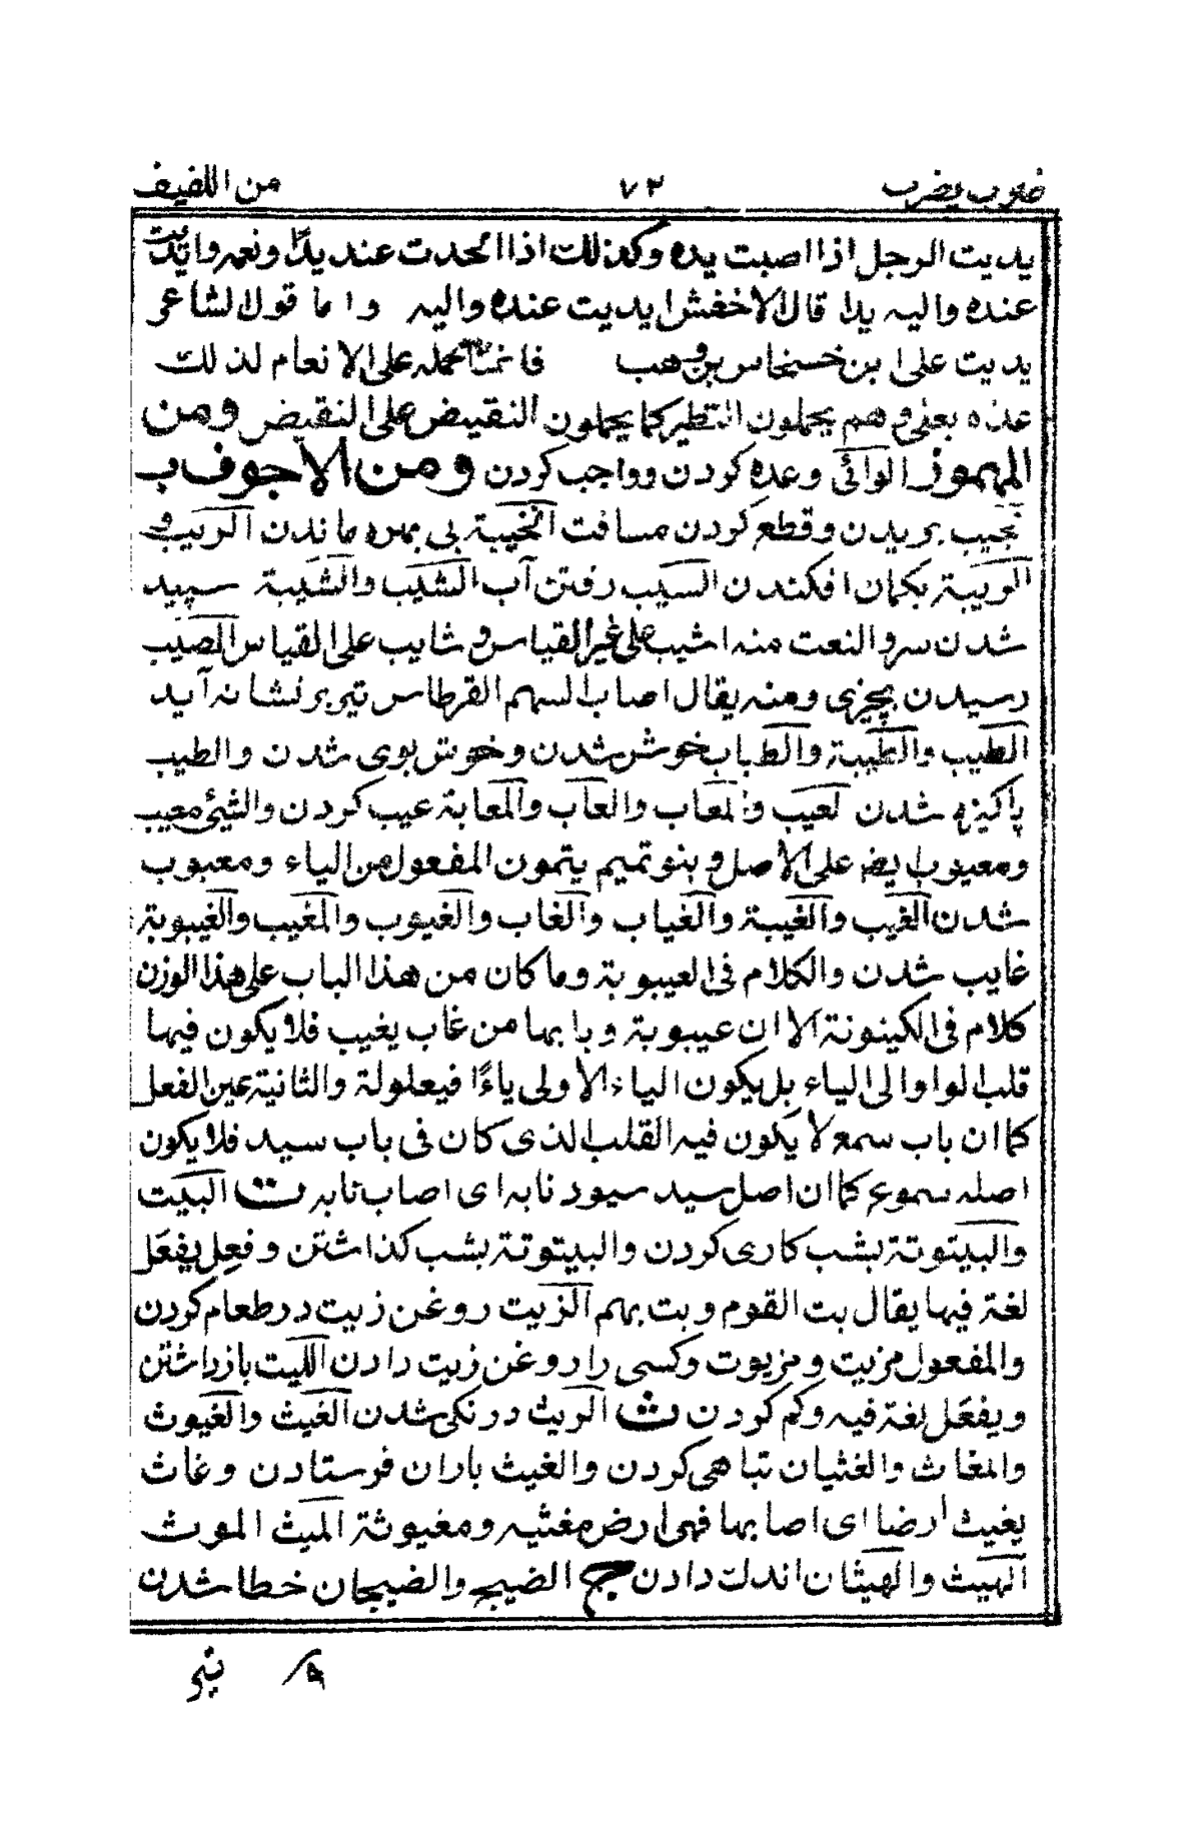 ضرب يضرب ٧٣ من اللفيف
يديت الرجل اذا اصبت يده وكذلك اذا اتخدت عند يدًا ونعمه وايديت
عنده واليه يدا قال الاخفش ايديت عنده واليه واما قول الشاعر
يديت على ابن حسحاس بن وهب فانما حمله على الانعام لذلك
عداه بعلى وهم يحملون النظير كما يحملون النقيض على النقيض ومن
المهموز الوائى وعده كردن وواجب كردن ومن الاجوف ب
نجيب بريدن وقطع كردن مسافت الخيبة بى بهره ماندن الريب و
الريبة بكمان افكندن السيب رفتن آب الشيب والشيبة سپيد
شدن سر والنعت منه اشيب على غير القياس و شايب على القياس الصيب
رسيدن بچيزى ومنه يقال اصاب السهم القرطاس تير بر نشانه آيد
الطيب والطيبة والطباب خوش شدن وخوش بوى شدن والطيب
پاكيزه شدن لعيب والمعاب والعاب والمعابة عيب كردن والشئ معيب
ومعيوب ايضا على الاصل و بنو تميم يتمون المفعول من الياء ومعيوب
شدن الغيب والغيبة والغياب والغاب والغيوب والمغيب والغيبوبة
غايب شدن والكلام فى الغيبوبة وما كان من هذا الباب على هذا الوزن
كلام فى الكينونة الا ان عيبوبة وبابها من غاب يغيب فلا يكون فيها
قلب الواو الى الياء بل يكون الياء الاولى ياءًا فيعلولة والثانية عين الفعل
كما ان باب سمع لا يكون فيه القلب الذى كان فى باب سيد فلا يكون
اصله سموع كما ان اصل سيد سيود نابه اى اصاب نابه ت البيت
والبيتوتة بشب كارى كردن والبيتوتة بشب كذاشتن وفعِل يفعَل
لغة فيها يقال بت القوم وبت بهم الزيت روغن زيت در طعام كردن
والمفعول مزيت ومزيوت وكسى را روغن زيت دادن الليت باز داشتن
ويفعَل لغة فيه وكم كردن ث الريث درنكى شدن الغيث والغيوث
والمغاث والغثيان تباهى كردن والغيث باران فرستادن وغاث
يغيث ارضا اى اصابها فهى ارض مغثيه ومغيوثة الميث الموث
الهيث والهيثان اندك دادن ج الضيج والضيجان خطا شدن
تير ٩/